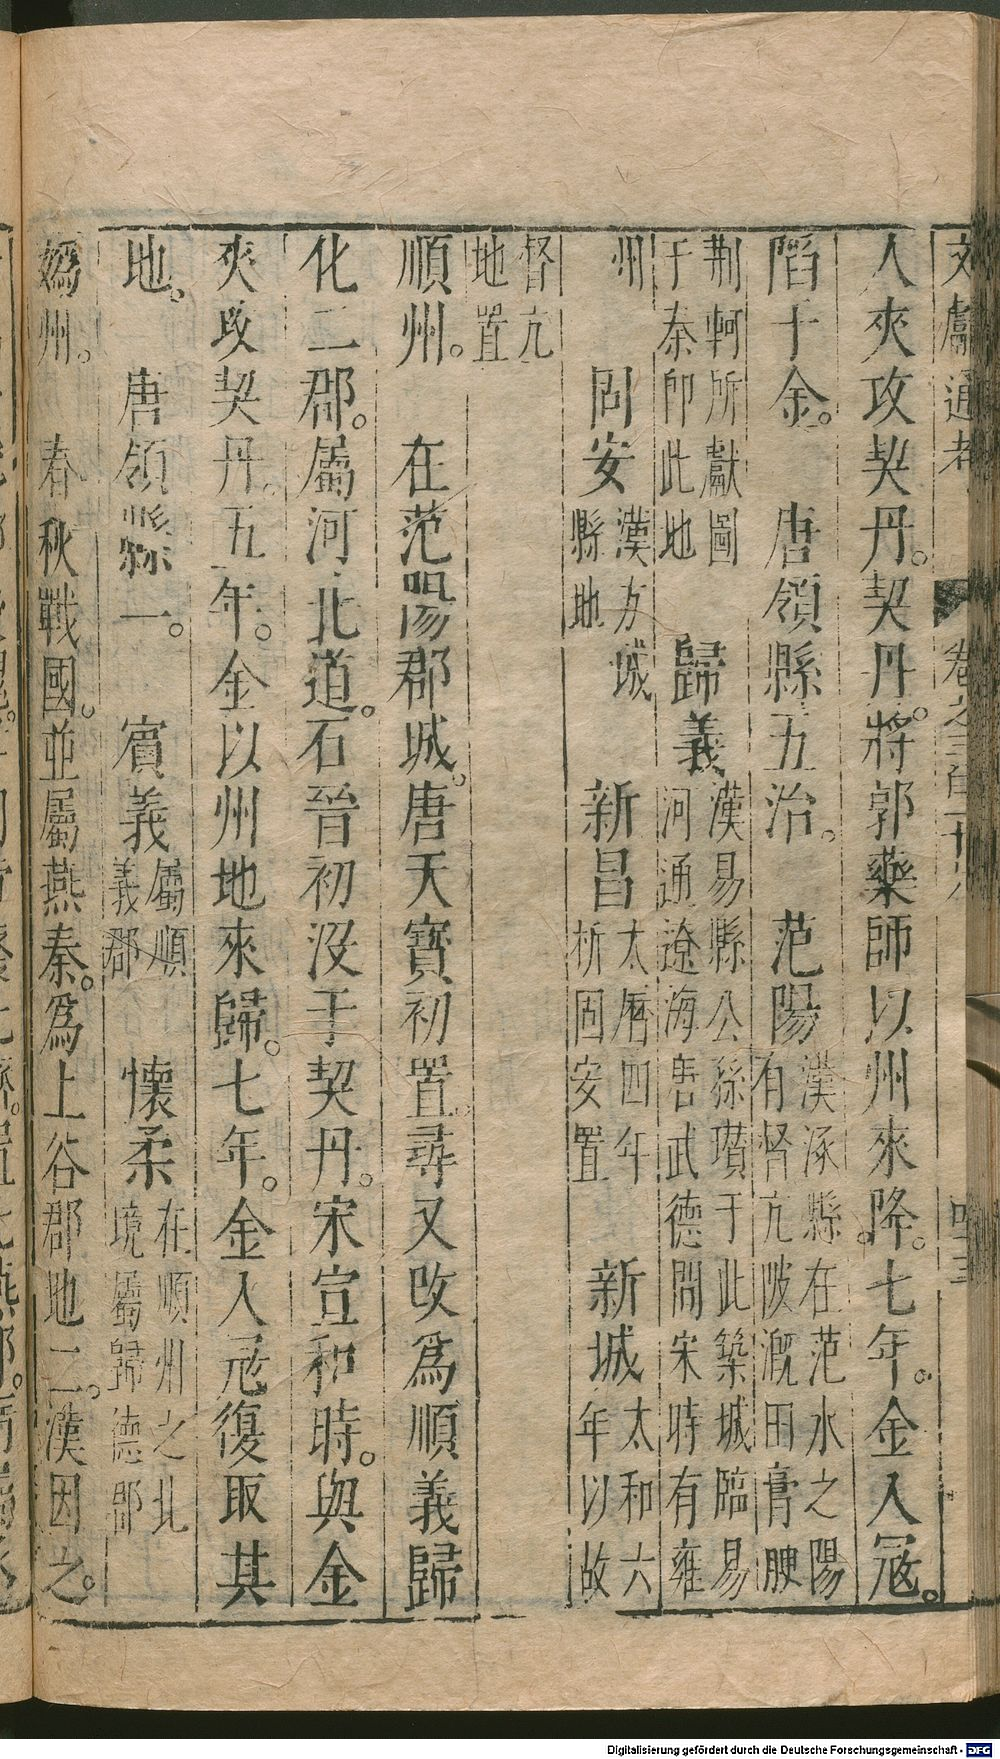 文獻通考 卷之三百十六
人夾攻契丹。契丹將郭藥師以州來降。七年。金入冦。
陷于金。 唐領縣五治。 范陽 漢涿縣在范水之陽 有督亢陂溉田膏腴
荆軻所獻圖 于秦卽此地 歸義 漢易縣公孫瓚于此築城臨易 河通遼海唐武德間宋時有雍
州 固安 漢方城 縣地 新昌 太曆四年 析固安置 新城 太和六 年以故
督亢 地置
順州。 在范陽郡城。唐天寳初置。尋又改爲順義歸
化二郡。屬河北道。石晉初没于契丹。宋宣和時。與金
夾攻契丹。五年。金以州地來歸。七年。金入冦復取其
地。 唐領縣一。 賓義 屬順 義郡 懷柔 在順州之北 境屬歸德郡
嬀州。 春秋戰國。並屬燕秦。爲上谷郡地二。漢因之。
Digitalisierung gefördert durch die Deutsche Forschungsgemeinschaft - DFG